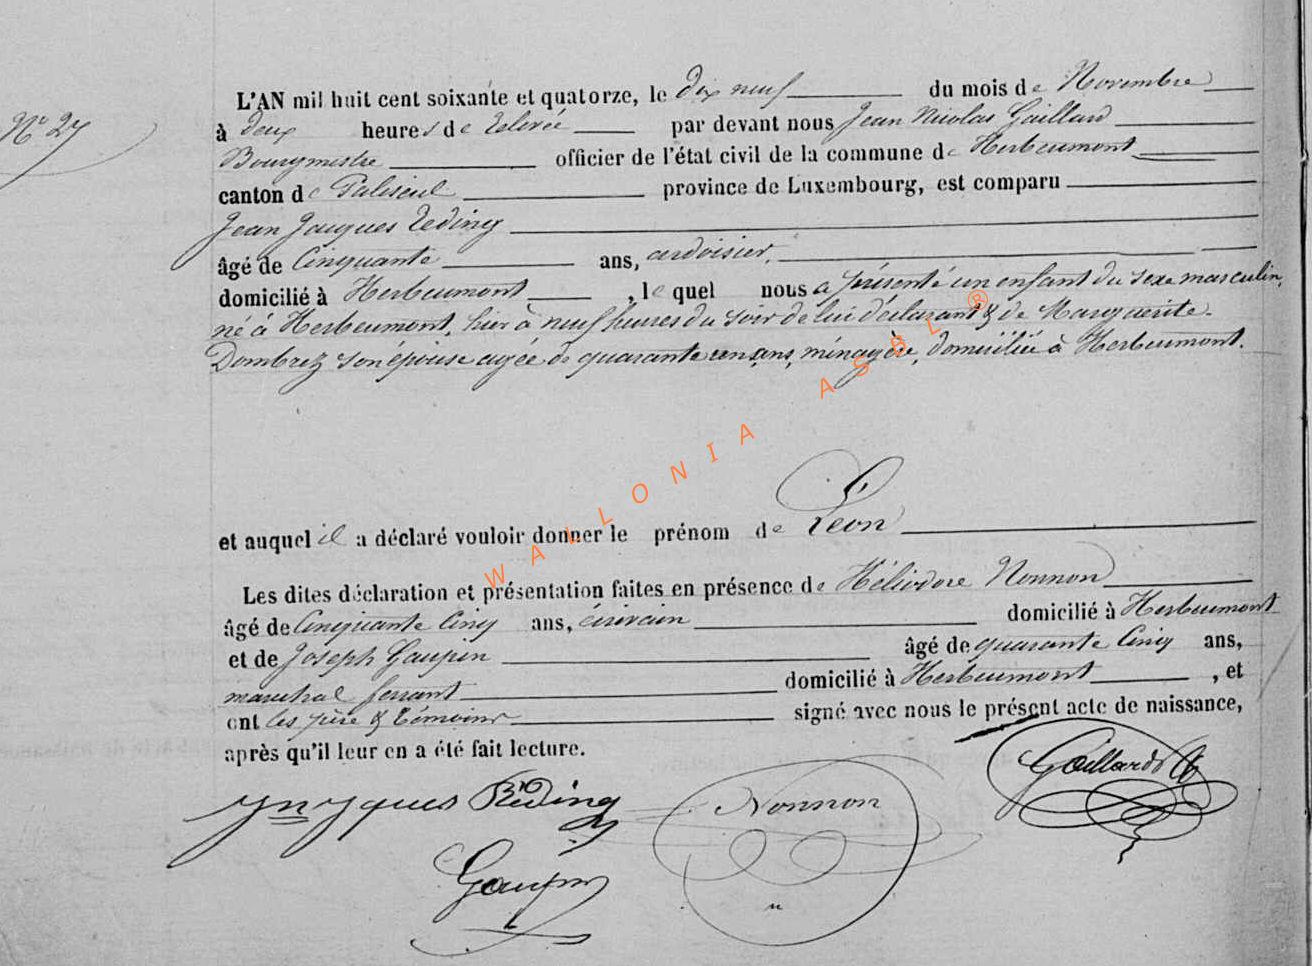 N° 27
L'AN mil huit cent soixante et quatorze, le dix neuf du mois de Novembre
à deux heures de relevée par devant nous Jean Nicolas Gaillard
Bourgmestre officier de l'état civil de la commune de Herbeumont
canton de Paliseul province de Luxembourg, est comparu
Jean Jacques Reding
âgé de Cinquante ans, ardoisier,
domicilié à Herbeumont, lequel nous a présenté un enfant du sexe masculin,
né à Herbeumont, hier à neuf heures du soir de lui déclarant & de Marguerite
Dombrez son épouse agée de quarante ans, ménagère, domiciliée à Herbeumont.
et auquel il a déclaré vouloir donner le prénom de Léon
Les dites déclaration et présentation faites en présence de Héliodore Nonnon
âgé de Cinquante Cinq ans, écrivain domicilié à Herbeumont
et de Joseph Gaupin âgé de quarante Cinq ans,
marechal ferrant domicilié à Herbeumont, et
ont les père & témoins signé avec nous le présent acte de naissance,
après qu'il leur en a été fait lecture.
Jn Jques Réding
Nonnon
Gaillard
Gaupin
WALLONIA ASBL ®